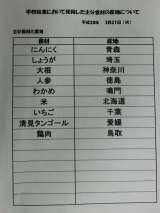 学校給食において使用した主な食材の産地について
平成28年 3月21日（火）
主な食材の産地
食材 産地
にんにく 青森
しょうが 埼玉
大根 神奈川
人参 徳島
わかめ 鳴門
米 北海道
いちご 千葉
清見タンゴール 愛媛
鶏肉 鳥取